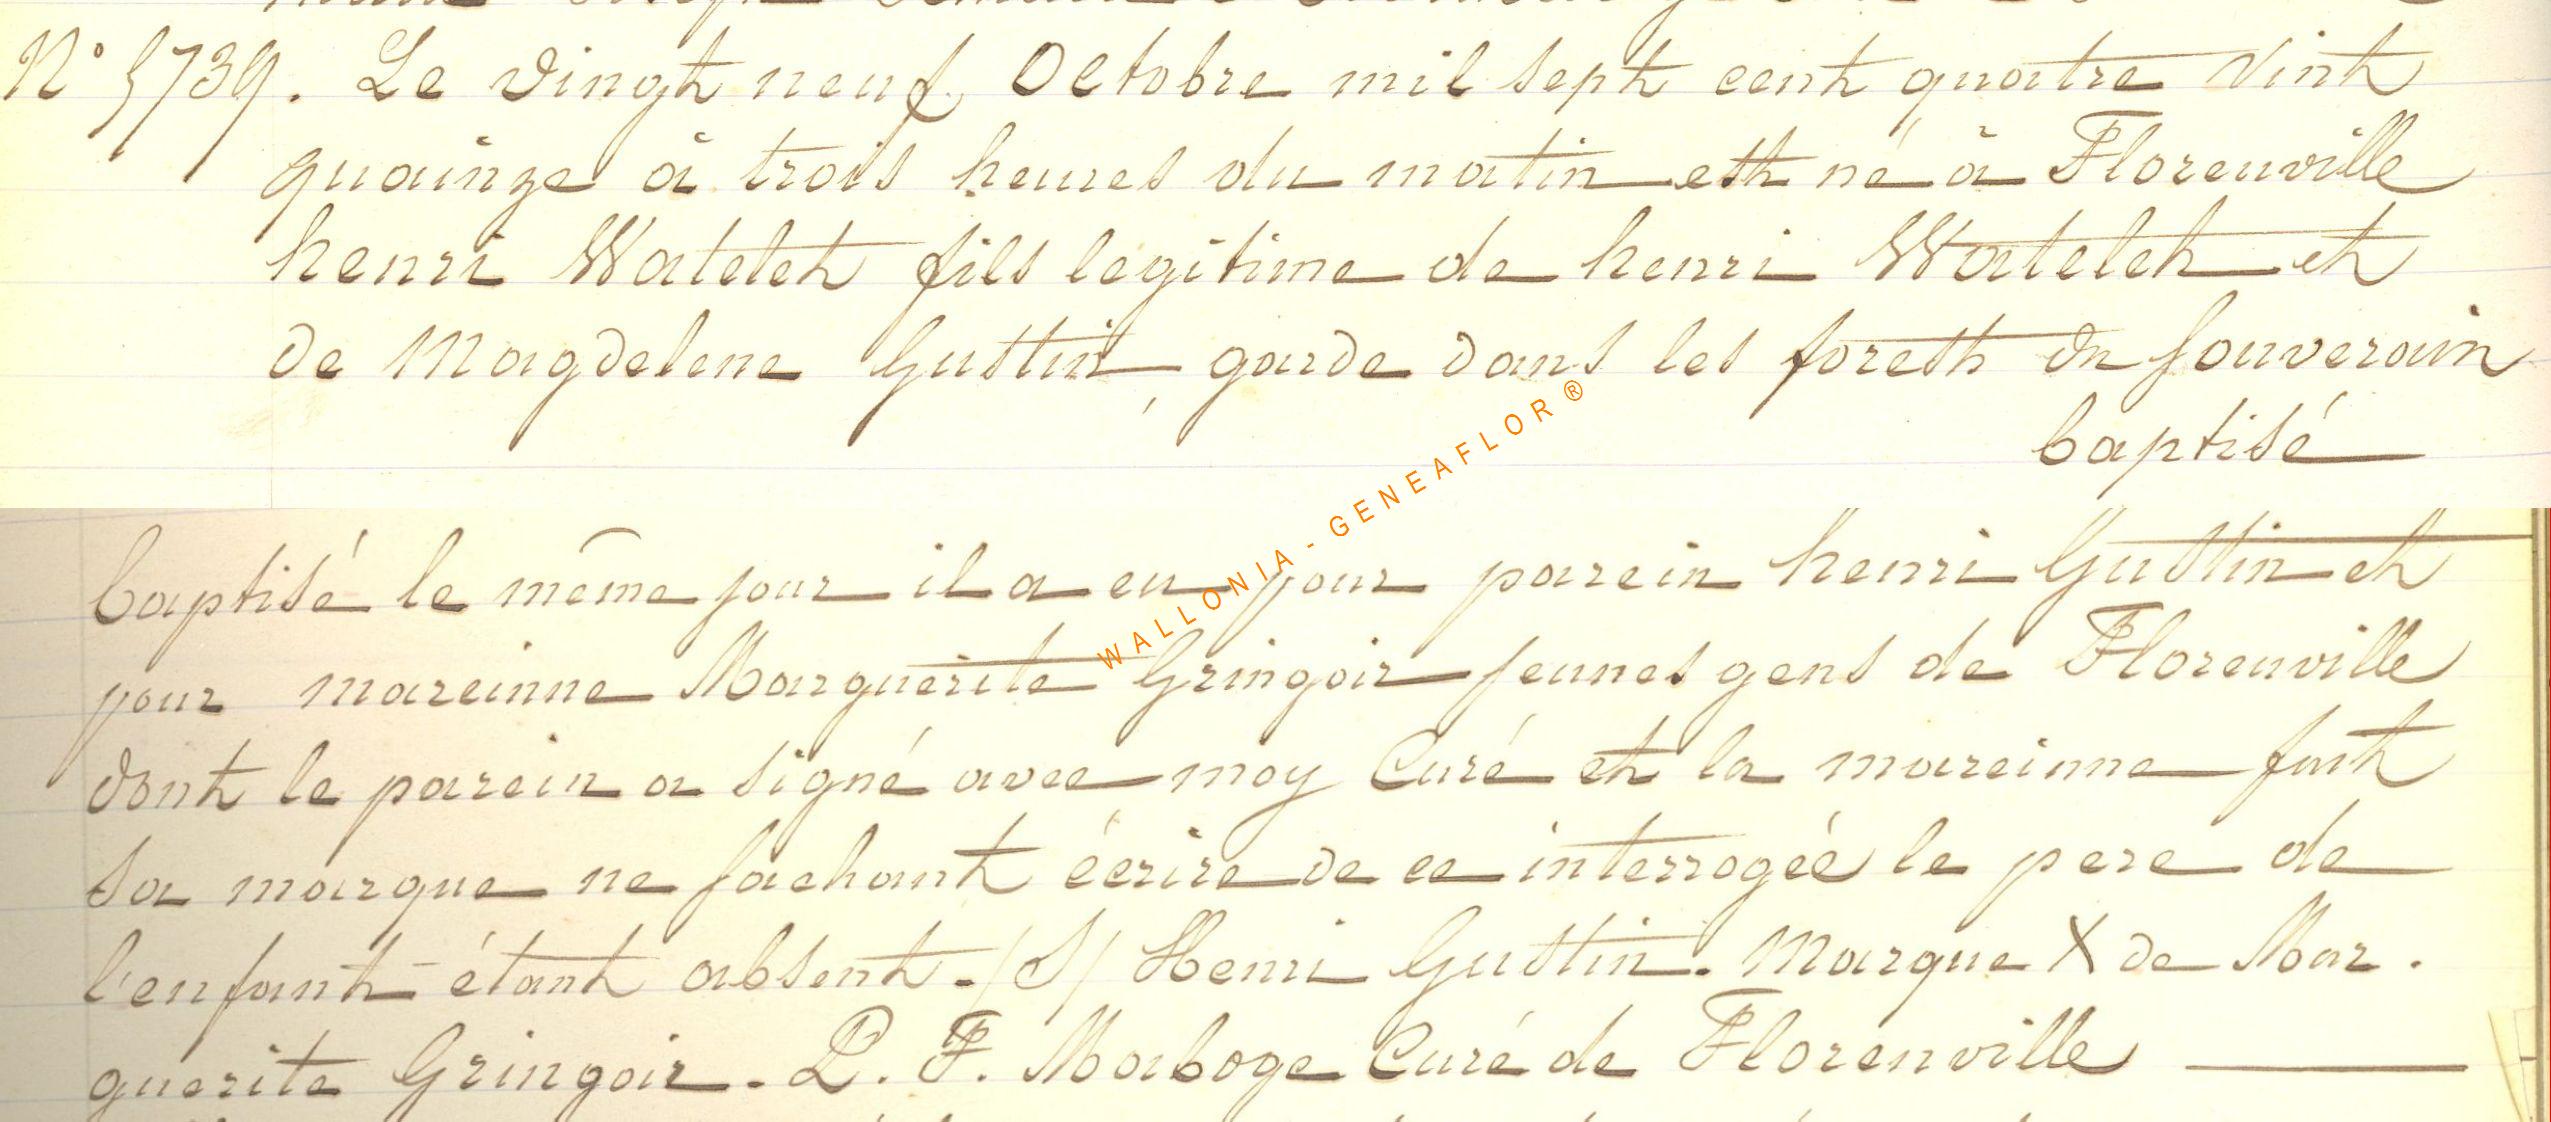 N° 5739. Le vingt neuf Octobre mil sept cent quatre vint
quainze à trois heures du matin est né à Florenville
henri Watelet fils legitime de henri Watelet et
de Magdelene Gustin, garde dans les forest du souverain
baptisé
baptisé le même jour il a eu pour parein henri Gustin et
pour mareinne Marguerite Gringoir jeunes gens de Florenville
dont le parein a signé avec moy Curé et la mareinne fait
sa marque ne sachant écrire de ce interrogéé le pere de
l'enfant étant absent. /S/ Henri Gustin. Marque X de Mar.
guerite Gringoir. P. F. Maboge Curé de Florenville
WALLONIA - GENEAFLOR ®